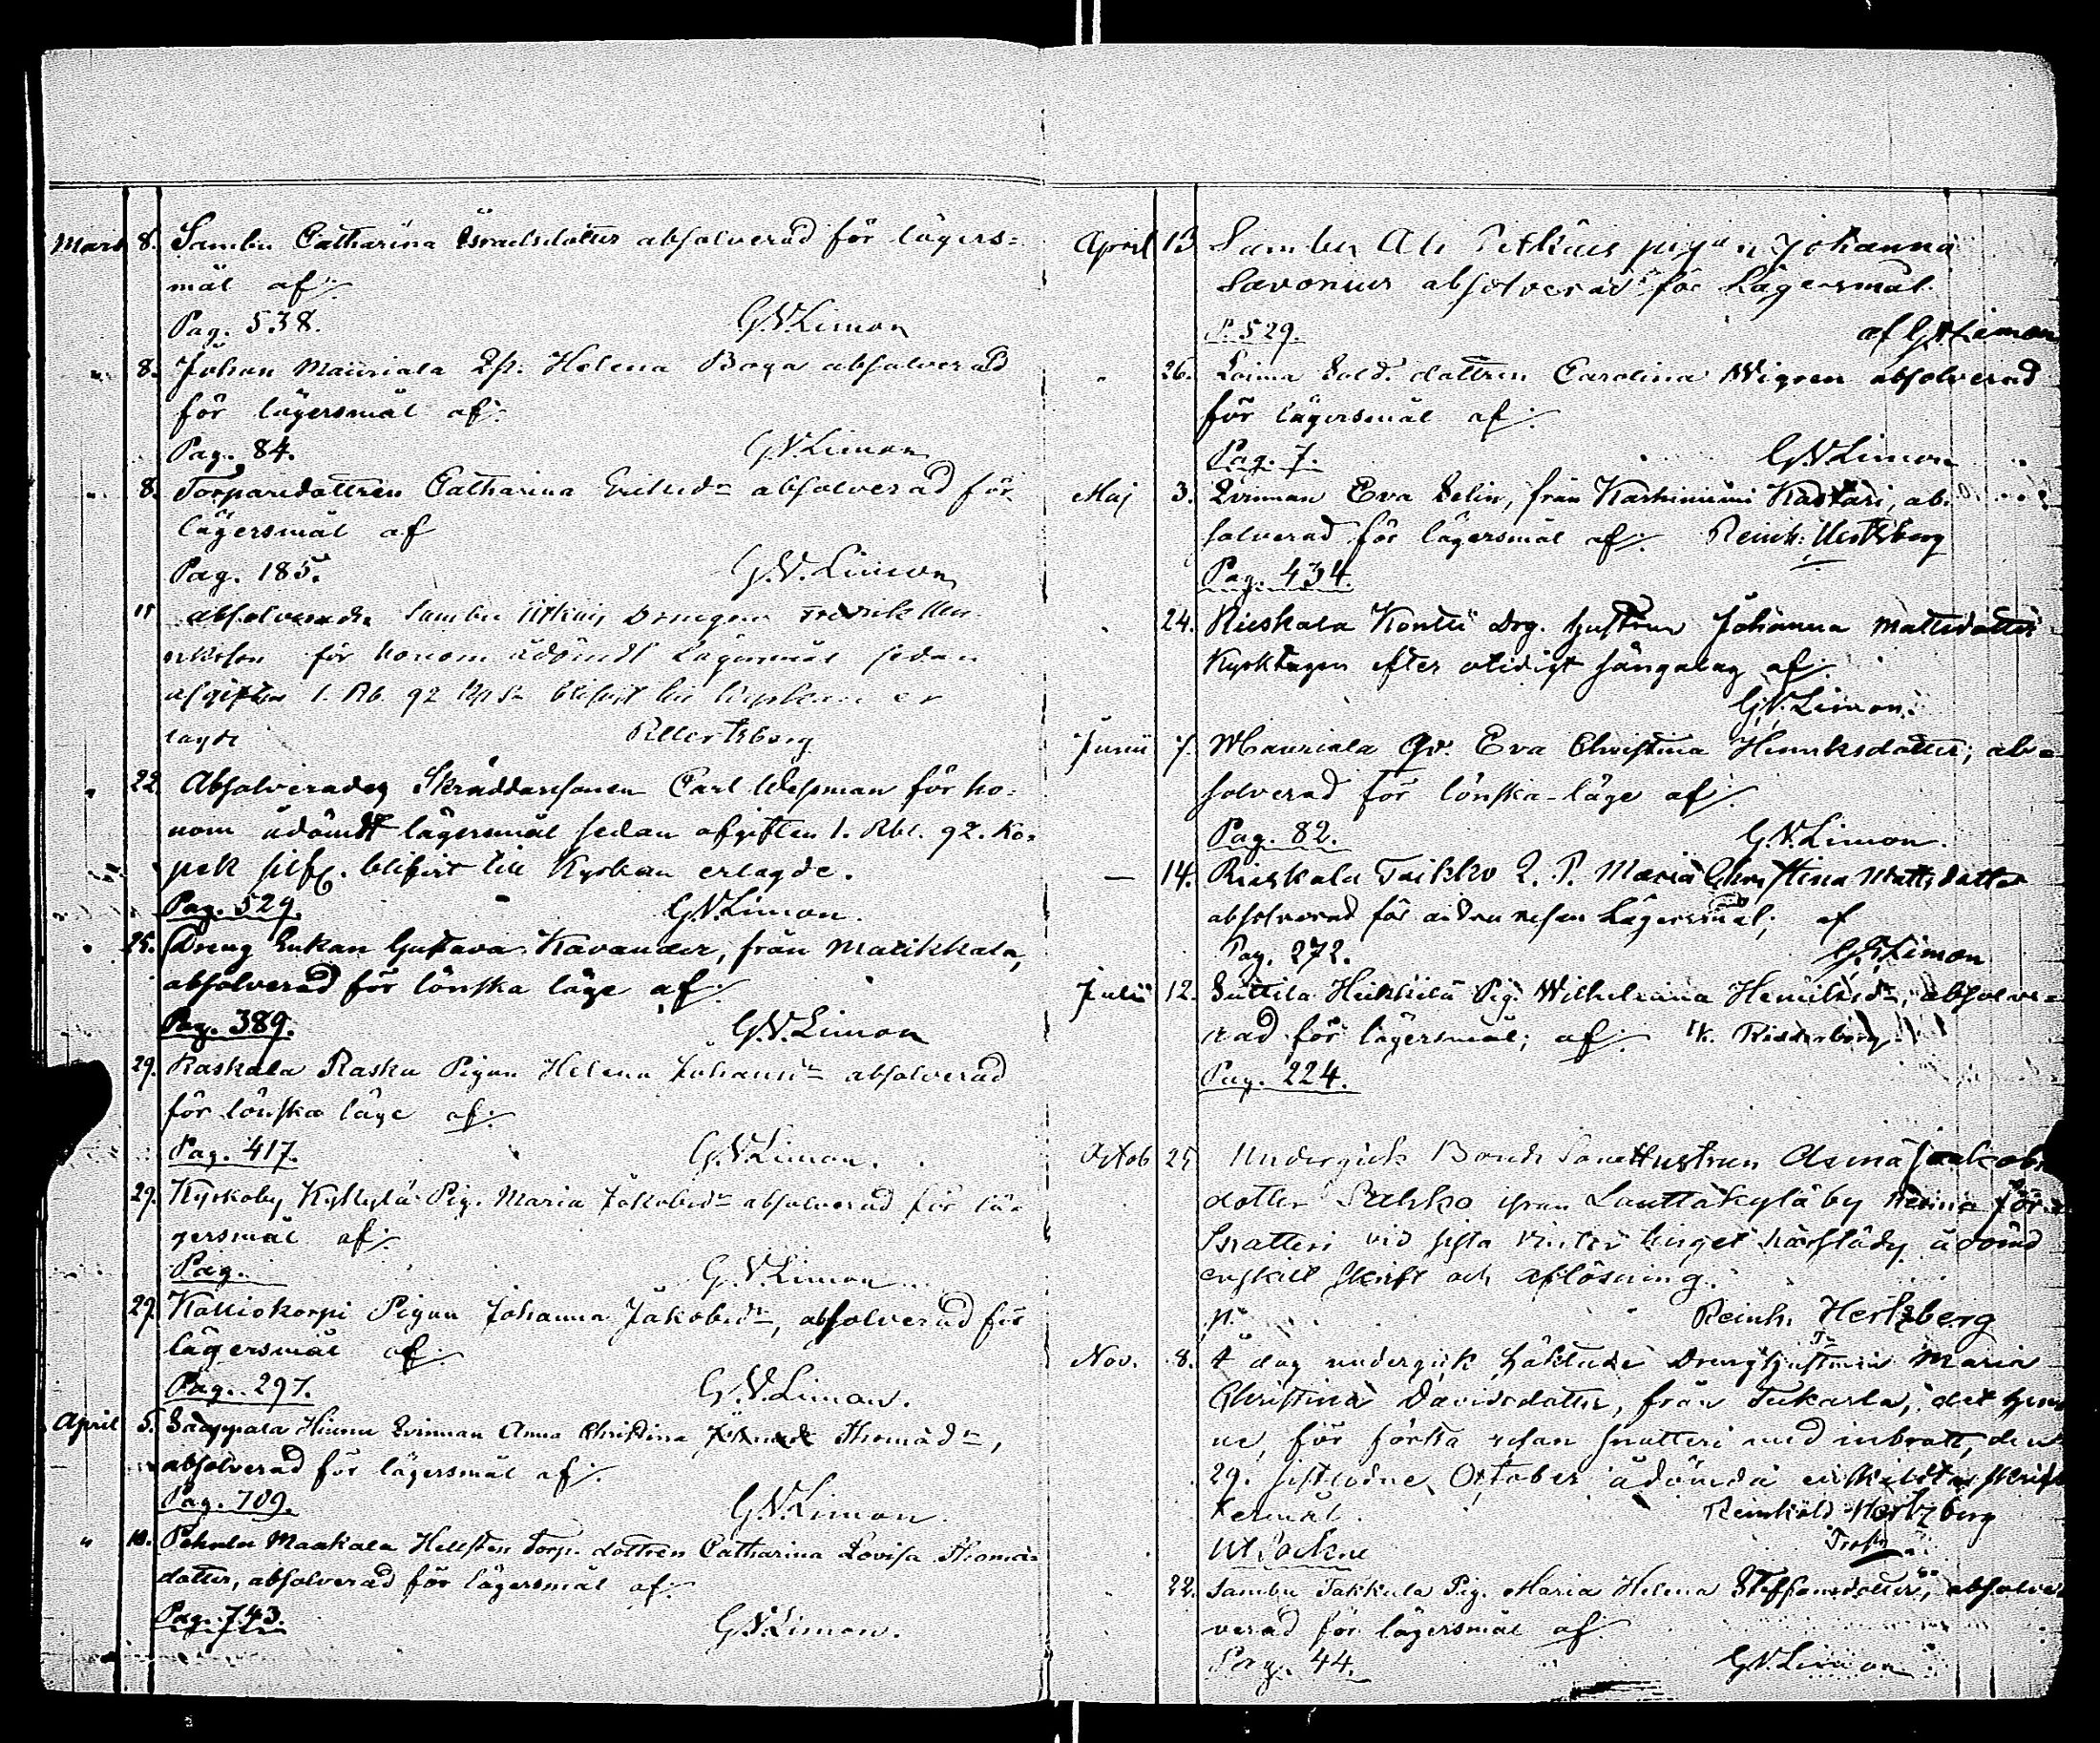 Mars 8. Sambu Catharina Israelsdotter absolverad för lägers=
mål af
Pag. 538. G.V. Limon
" 8. Johan Mauriala Qp. Helena Boga absolverad
för lägersmål af
Pag. 84. G.V. Limon
" 8. Torparedottren Catharina Ericsdr absolverad för
lägersmål af
Pag. 185. G.V. Limon
absolverades Sambu drengen Fredrik
för honom ådömdt Lägersmål sedan
afgiften 1. Rb. 92 blifvit till kyrkan er
lagde RHertzberg
" 22. Absolverades Skräddaresonen Carl Wessman för ho=
nom ådömdt lägersmål sedan afgiften 1. Rbl. 92. Ko=
pek silfr. blifvit till Kyrkan erlagde.
Pag. 529. G.V. Limon.
" 25. Dreng Enkan Gustava Kavander, från Matikkala,
absolverad för lönska läge af
Pag. 389. G.V. Limon
29. Raskala Raska Pigan Helena Johansdr absolverad
för lönska läge af
Pag. 417. G.V. Limon.
29. Kyrkoby Kykylä Pig. Maria Jakobsdr absolverad för lä=
gersmål af
Pag. G.V. Limon
29. Kalliokorpi Pigan Johanna Jakobsdr, absolverad för
lägersmål af
Pag. 297. G.V. Limon.
April 5. Saappala Hinnu Qvinnan Anna Christina Thomasdr,
absolverad för lägersmål af
Pag. 709. G.V. Limon.
" 10. Maakala Hellsten Torp. dottren Catharina Lovisa Thomas
dotter, absolverad för lägersmål af
Pag. 743. G.V. Limon.
April 13 Sambu Ali Pitkäis pigan Johanna
Savonius absolverad för Lägersmål
P. 529. af G.V. Limon
" 26. Loima Sold. dottren Carolina Wigren absolverad
för lägersmål af
Pag. 7. G.V. Limon
Maj 3. Qvinnan Eva Selin, från Karhiniemi Kastari, ab=
solverad för lägersmål af Reinh. Hertzberg
Pag. 434.
24. Rieskala Konti Drg. hustrun Johanna Mattsdotter
Kyrktagen efter otidigt sängalag af
G.V. Limon.
Junii 7. Mauriala Qv. Eva Christina Henriksdotter; ab=
solverad för lönska-läge af
Pag. 82. G.V. Limon.
— 14. Rieskala Taikko Q. P. Maria Christina Mattsdotter
absolverad för andra resan Lägersmål; af
Pag. 272. G.V. Limon
Julii 12. Suttila Heikkilä Pig. Wilhelmina Henriksdr, absolve=
rad för lägersmål; af
Pag. 224.
Octob 25 Undergick Bonde Sonehustrun Jaakobs
dotter från Lauttakylä by för
Snatteri vid sista Vinter tinget härstädes ådömd
enskilt skrift och aflösning.
p. Reinh. Hertzberg
Nov. 8. I dag undergick häktade Dreng hustrun Maria
Christina Davidsdotter, från Tukarla, det hen
ne, för första resan snatteri med inbrott, den
29. sistledne October ådömda enskildta skrif
termål. Reinhold Hertzberg
Utsockne Prost
22. Sambu Takkula Pig. Maria Helena Steffansdotter, absolve
verad för lägersmål af
Pag. 44. G.V. Limon